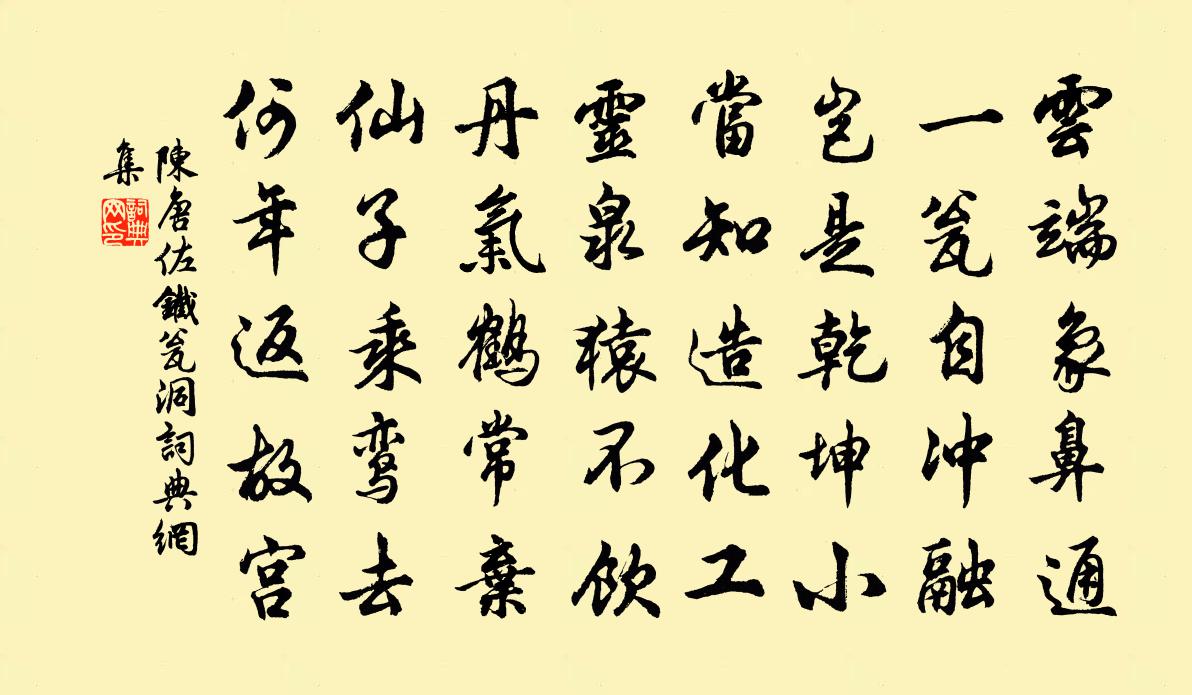 雲端象鼻通
一瓮自冲融
岂是乾坤小
當知造化工
靈泉猿不飲
丹氣鶴常棄
仙子乘鸾去
何年返故宫
陳唐佐鐵瓮洞詞典網
集
詞典
网印